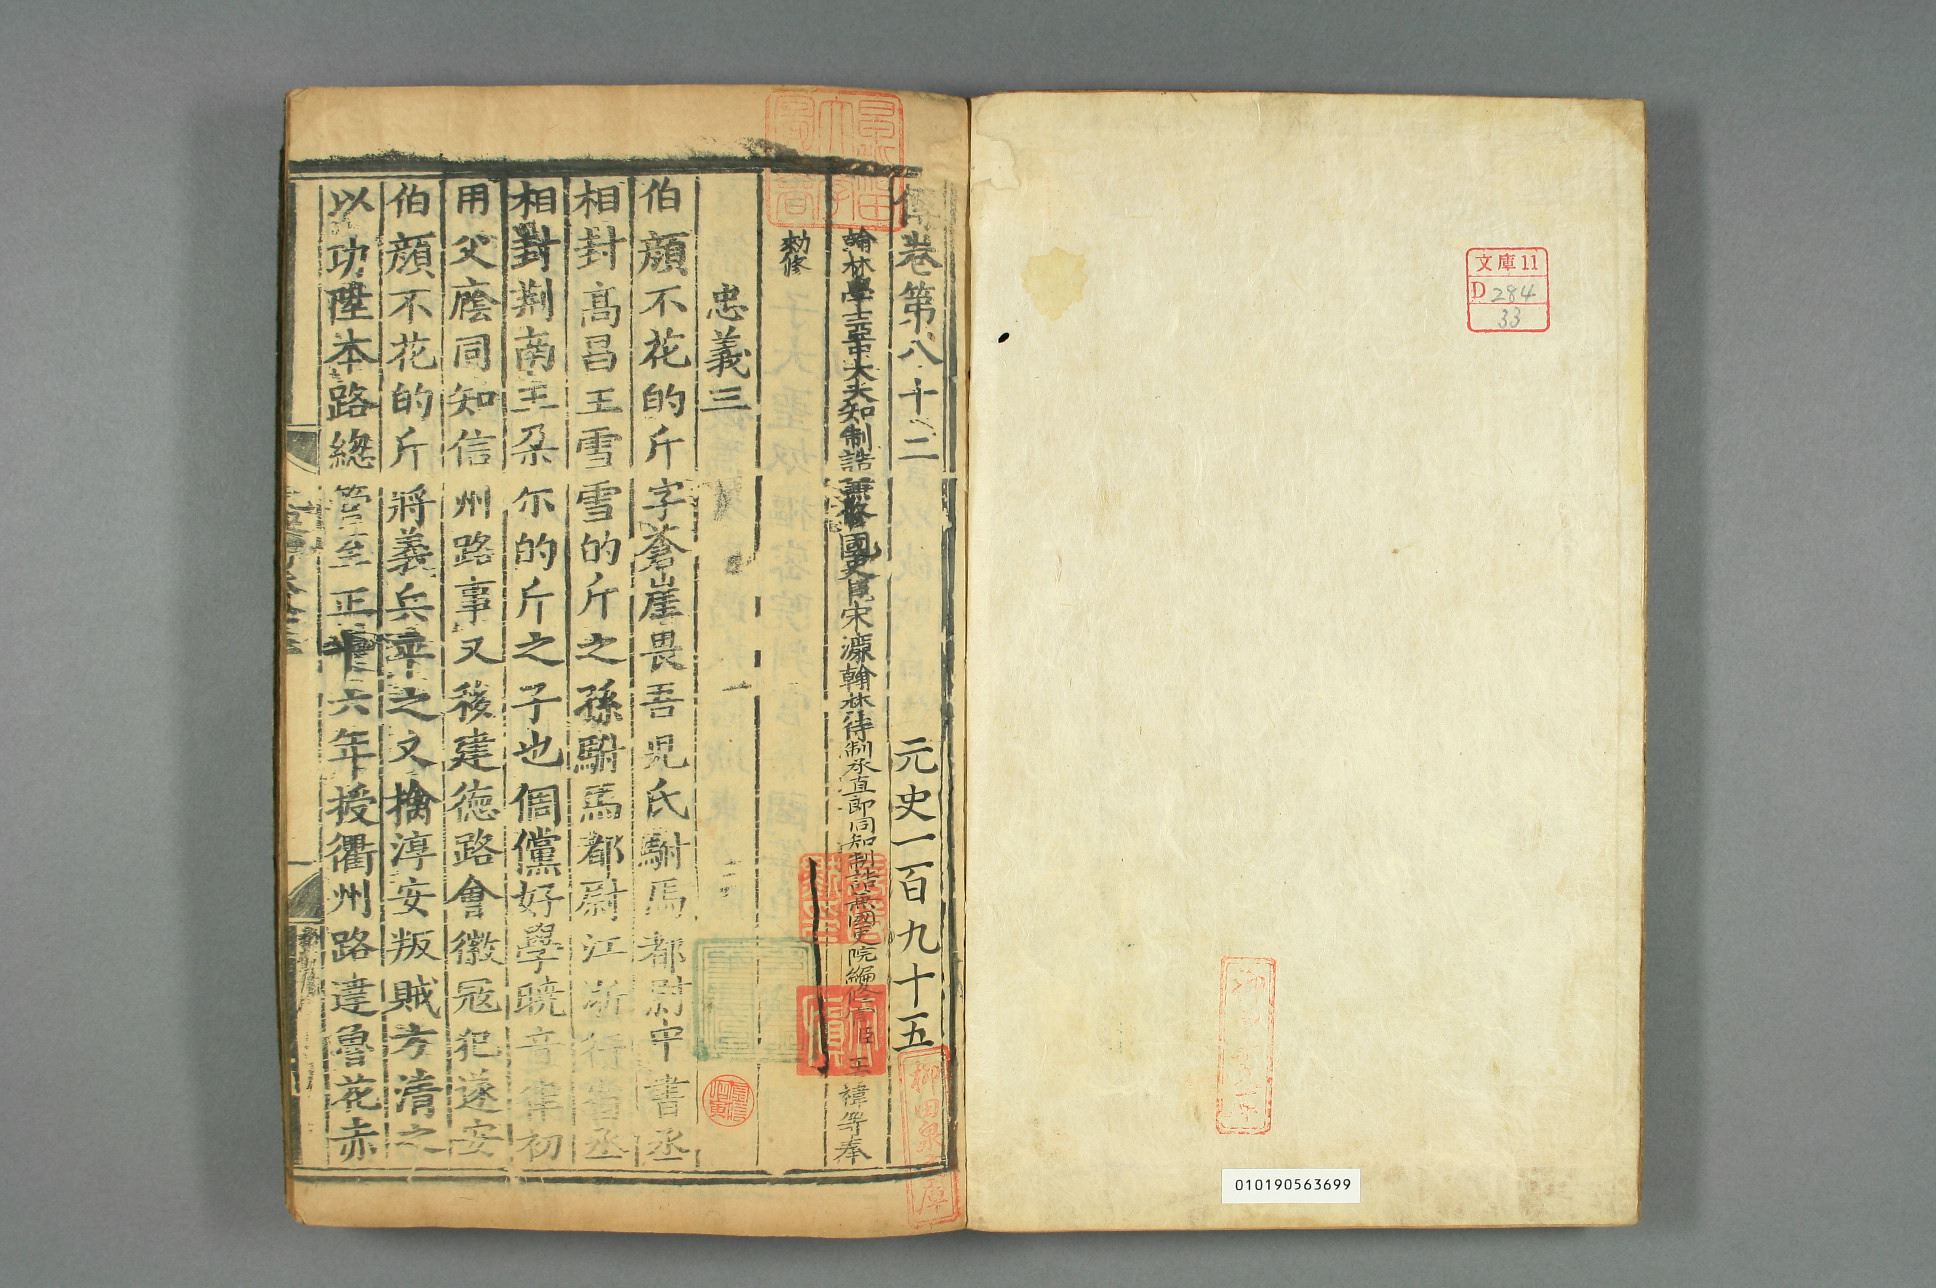 文庫11
D 284
33
010190563699
傳卷第八十二 元史一百九十五
翰林學士亞中大夫知制誥兼修國史臣宋濂翰林待制承直郎同知制誥兼國史院編修官臣王禕等奉
勑修
忠義三
伯顏不花的斤字蒼崖畏吾児氏駙馬都尉中書丞
相封髙昌王雪雪的斤之孫駙馬都尉江浙行省丞
相封荆南王朶尓的斤之子也倜儻好學曉音律初
用父䕃同知信州路事又移建德路會徽冦犯遂安
伯顏不花的斤將義兵平之又擒淳安叛賊方清之
以功陞本路緫管至正十六年授衢州路達魯花赤
柳田泉文庫